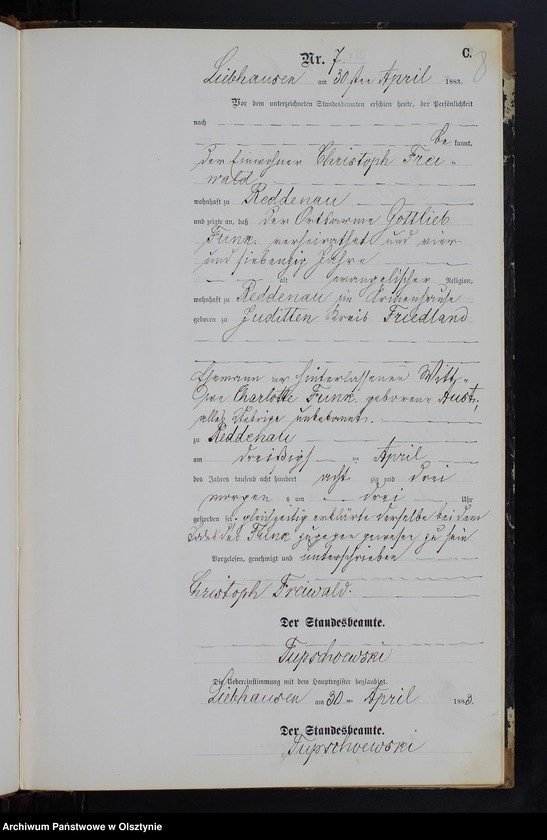 C.
8
Nr. 7.
Liebhausen am 30sten April 1883.
Vor dem unterzeichneten Standesbeamten erschien heute, der Persönlichkeit
nach
be kannt,
der Einwohner Christoph Frei-
wald
wohnhaft zu Reddenau
und zeigte an, daß der Ortsarme Gottlieb
Funk, verheirathet und vier
und siebenzig Jahre
alt evangelischer Religion,
wohnhaft zu Reddenau im Armenhause
geboren zu Juditten Kreis Friedland
Ehemann der hinterlassenen Witt-
we Charlotte Funk geborene Aust,
alles Uebrige unbekannt.
zu Reddenau
am dreißigsten April
des Jahres tausend acht hundert acht zig und drei
morgens um drei Uhr
gestorben sei, gleichzeitig erklärte derselbe bei dem
Tode des Funk zugegen gewesen zu sein
Vorgelesen, genehmigt und unterschrieben
Christoph Freiwald.
Der Standesbeamte.
Tupschoewski
Die Uebereinstimmung mit dem Hauptregister beglaubigt.
Liebhausen am 30ten April 1883.
Der Standesbeamte.
Tupschoewski
Archiwum Państwowe w Olsztynie